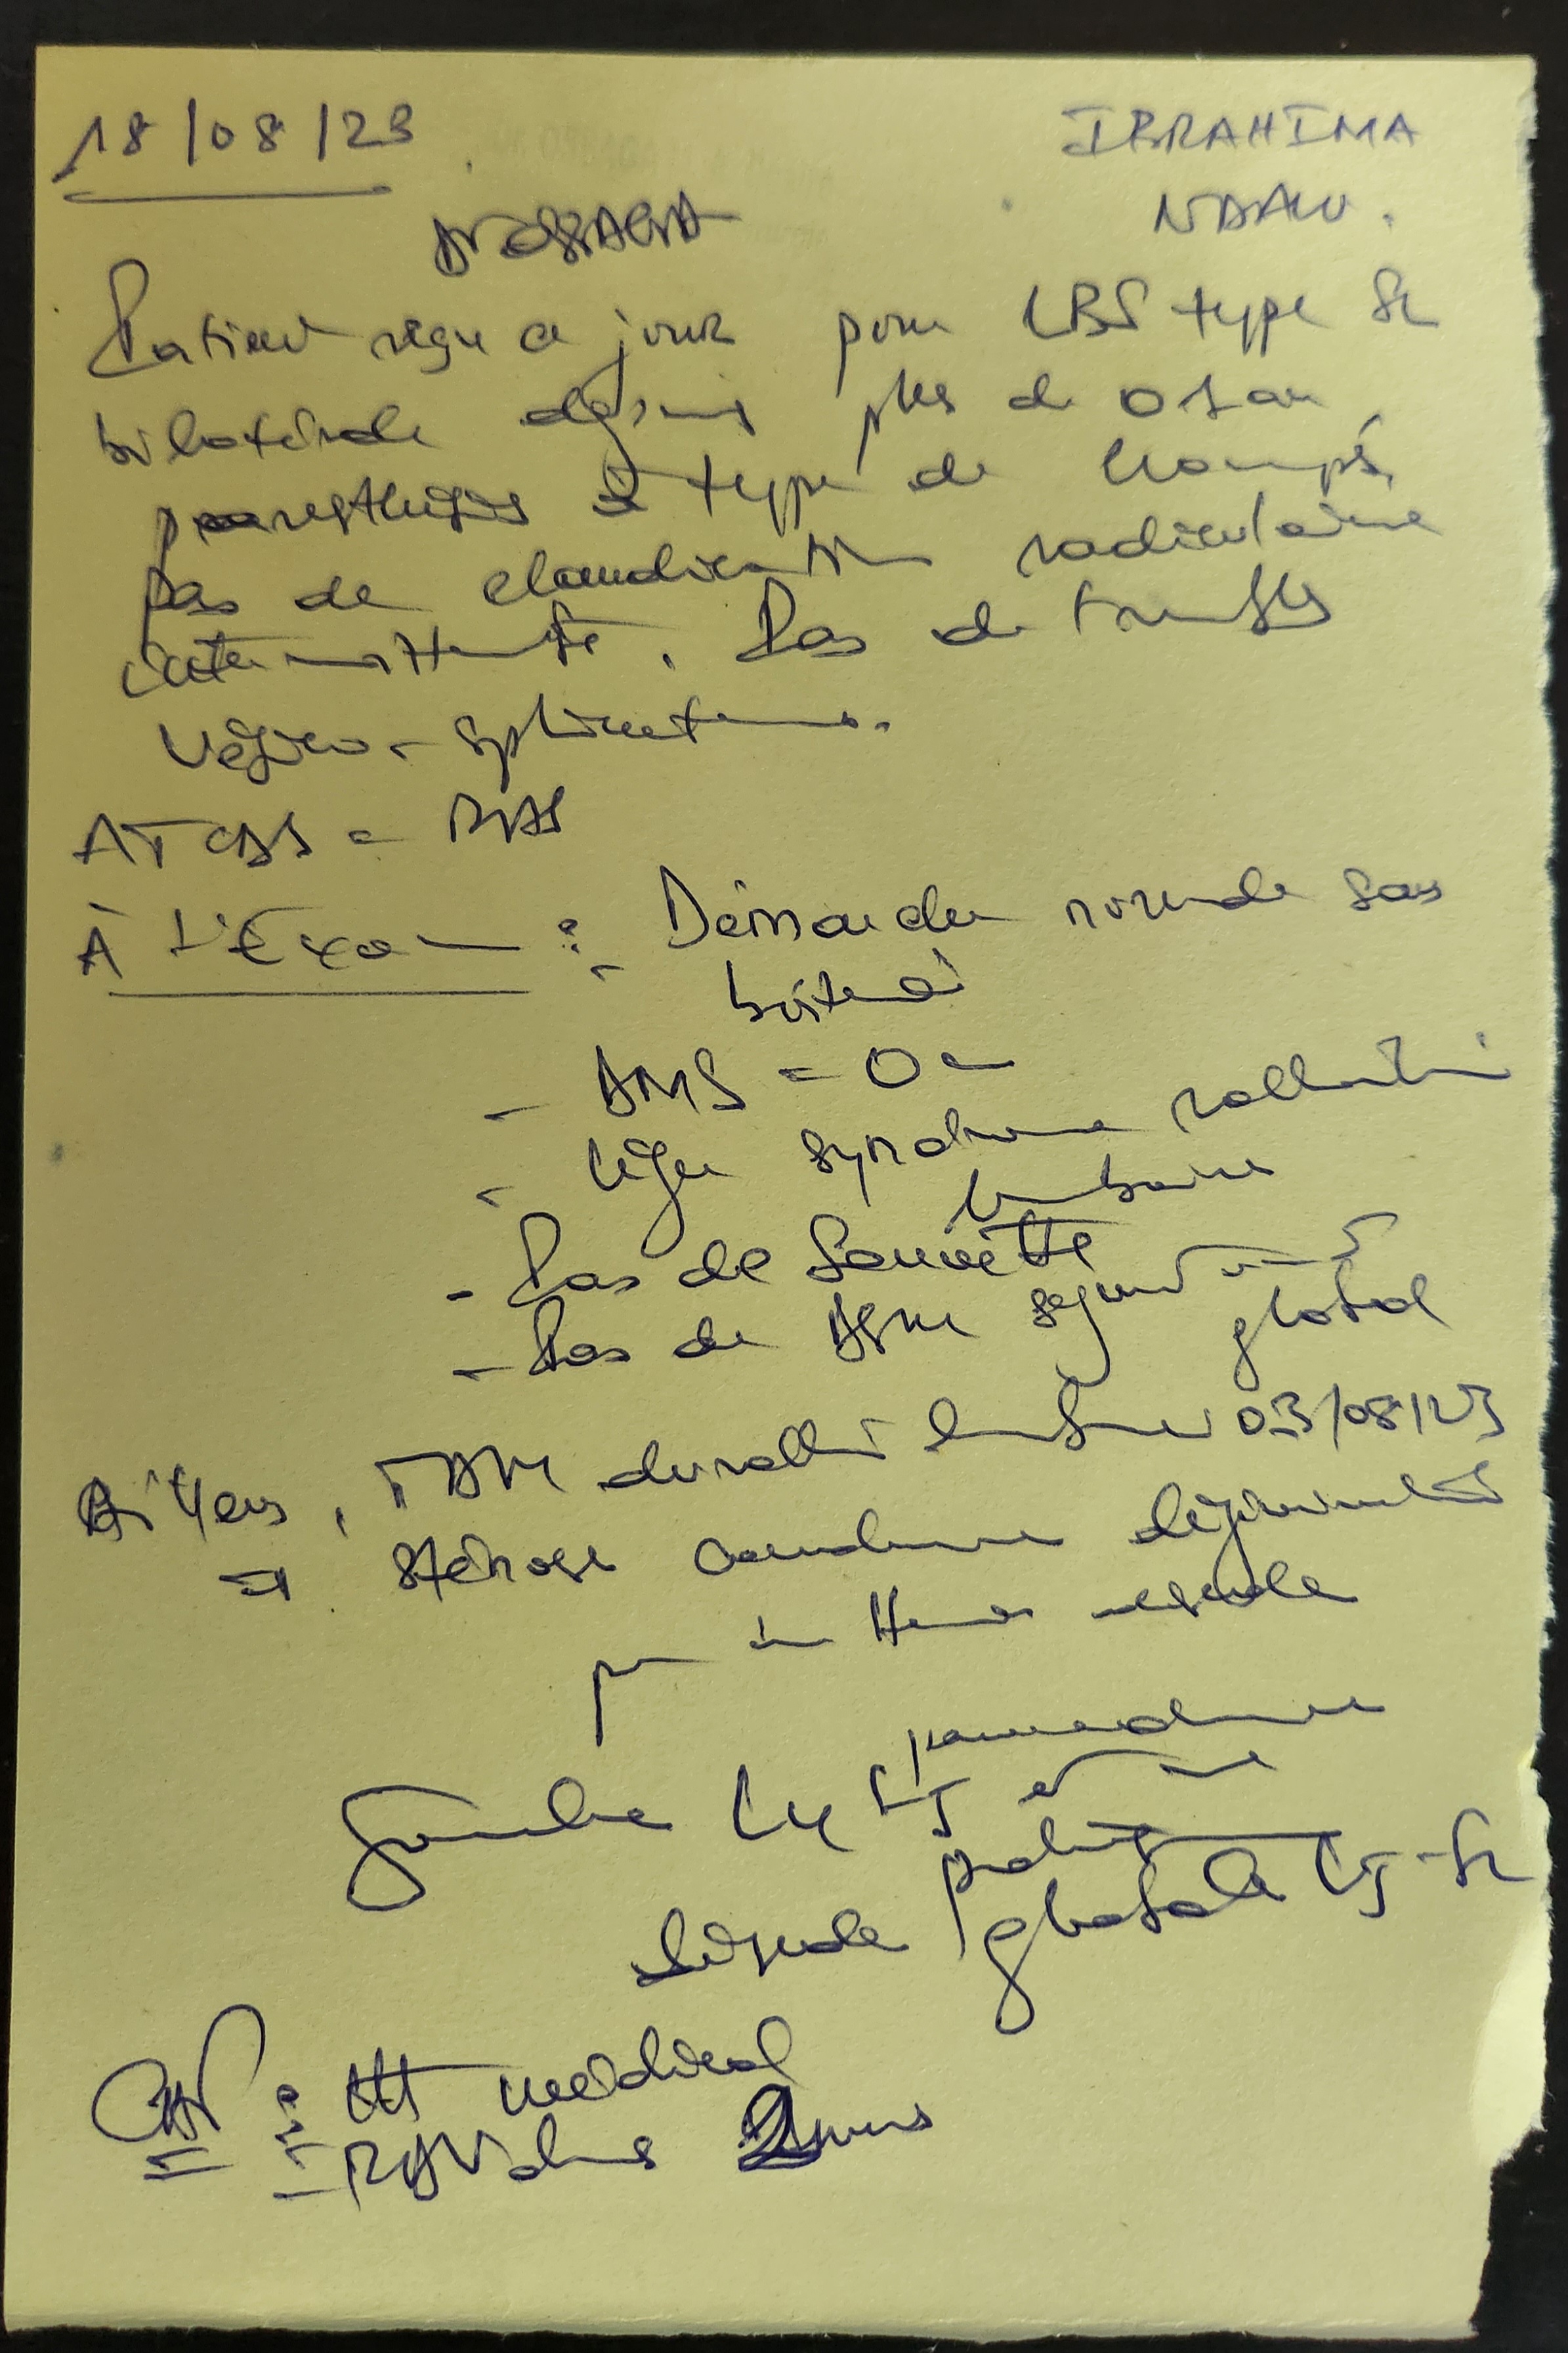 18/08/23
IBRAHIMA
NDAW.
Patient reçu ce jour pour LBS type S1
bilatérale depuis plus de 01 an,
paresthésies à type de crampes,
pas de claudication radiculaire
intermittente. Pas de troubles
vésico-sphinctériens.
ATCDS = RAS
À L'Examen : - Démarche normale sans
boiterie
- DMS = 0 cm
- Léger syndrome rachidien
lombaire
- Pas de Sonnette
- Pas de déficit segmentaire
global
Bilans, TDM du rachis lombaire 03/08/23
⇒ Sténose canalaire dégénérative
par
gauche L4 L5 et une
discale globale L5-S1
CAT : - ttt médical
- RDV dans 2 mois